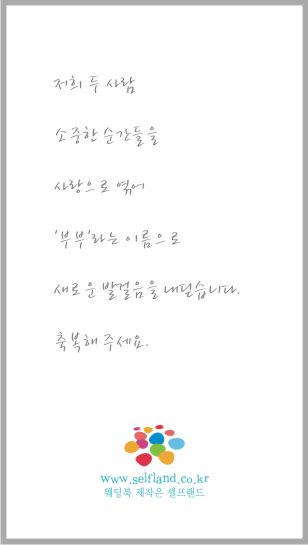 저희 두 사람
소중한 순간들을
사랑으로 엮어
'부부'라는 이름으로
새로운 발걸음을 내딛습니다.
축복해 주세요.
www.selfland.co.kr
웨딩북 제작은 셀프랜드